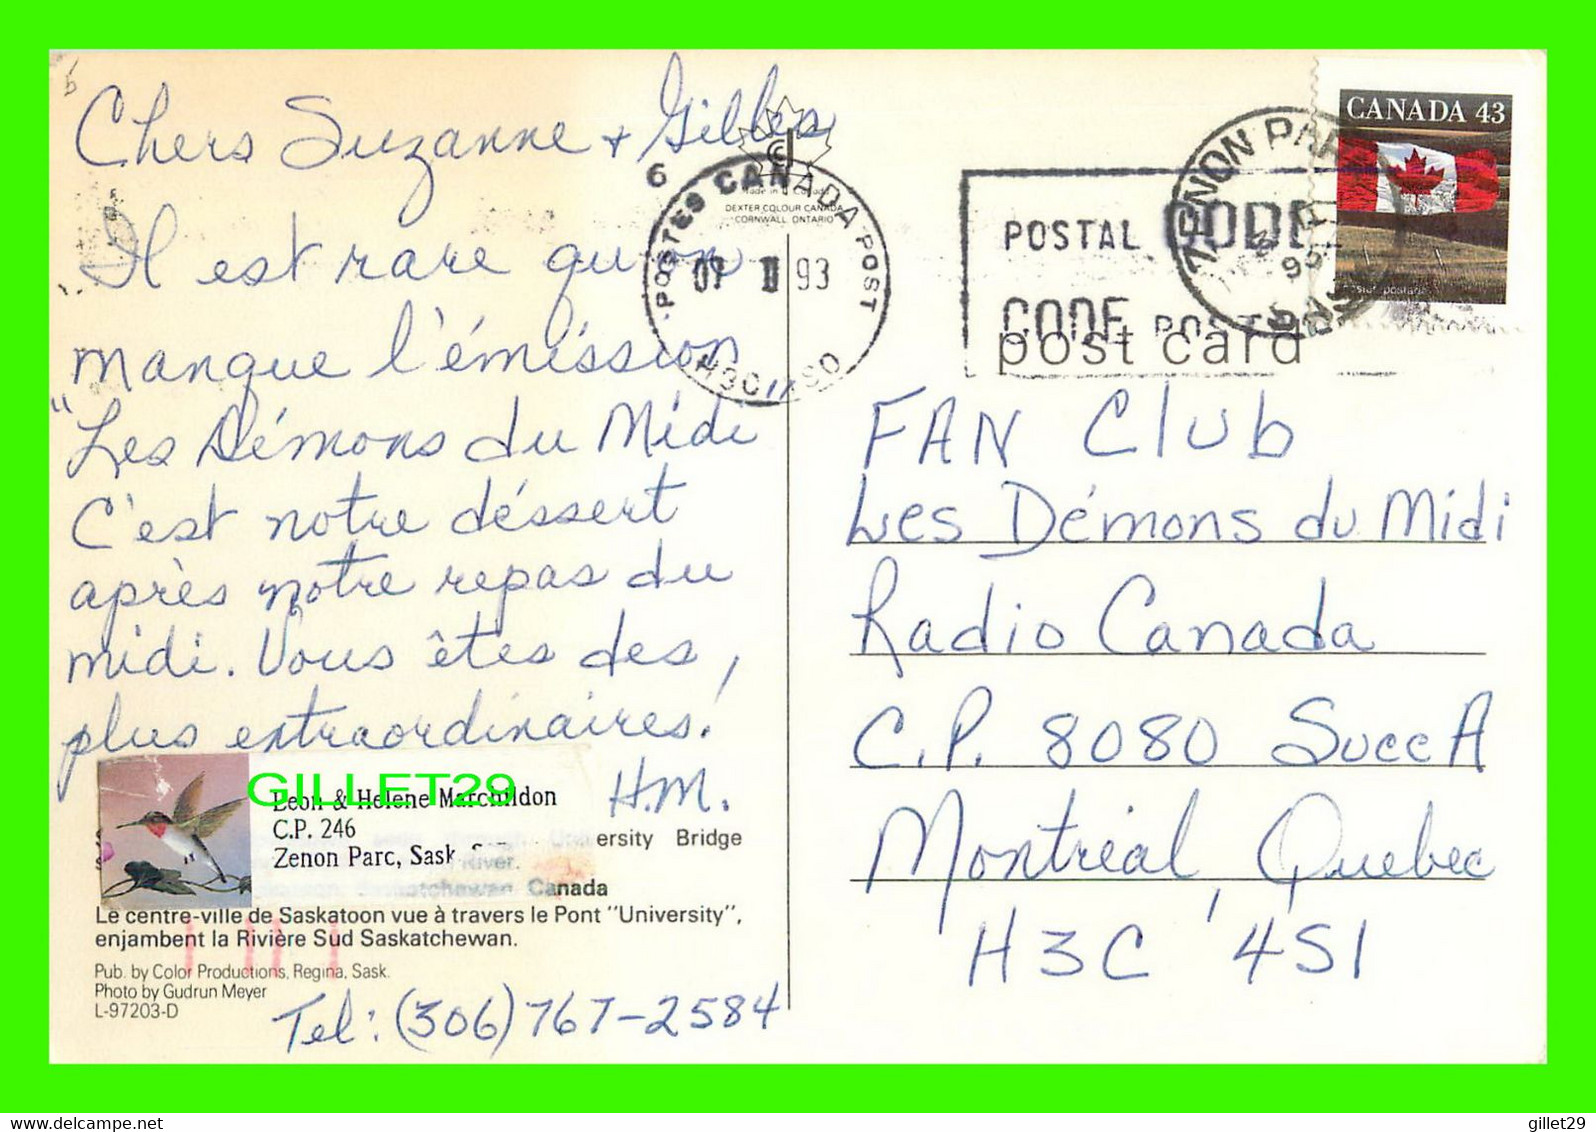 Chers Suzanne + Gilles
Il est rare qu'on
manque l'émission
"Les Démons du Midi
C'est notre déssert
après notre repas du
midi. Vous êtes des,
plus extraordinaires!
H.M.
GILLET29
Leon & Helene Marchildon
C.P. 246
Zenon Parc, Sask
ersity Bridge
River.
Saskatchewan Canada
Le centre-ville de Saskatoon vue à travers le Pont "University",
enjambent la Rivière Sud Saskatchewan.
Pub. by Color Productions, Regina, Sask.
Photo by Gudrun Meyer
L-97203-D
Tel: (306) 767-2584
6
Made in Canada
DEXTER COLOUR CANADA
CORNWALL ONTARIO
POSTES CANADA POST
07 II 93
H3C
CANADA 43
ZENON PARK
SASK
POSTAL CODE
CODE POSTAL
post card
FAN Club
Les Démons du Midi
Radio Canada
C.P. 8080 Succ A
Montréal, Quebec
H3C 4S1
delcampe.net
gillet29